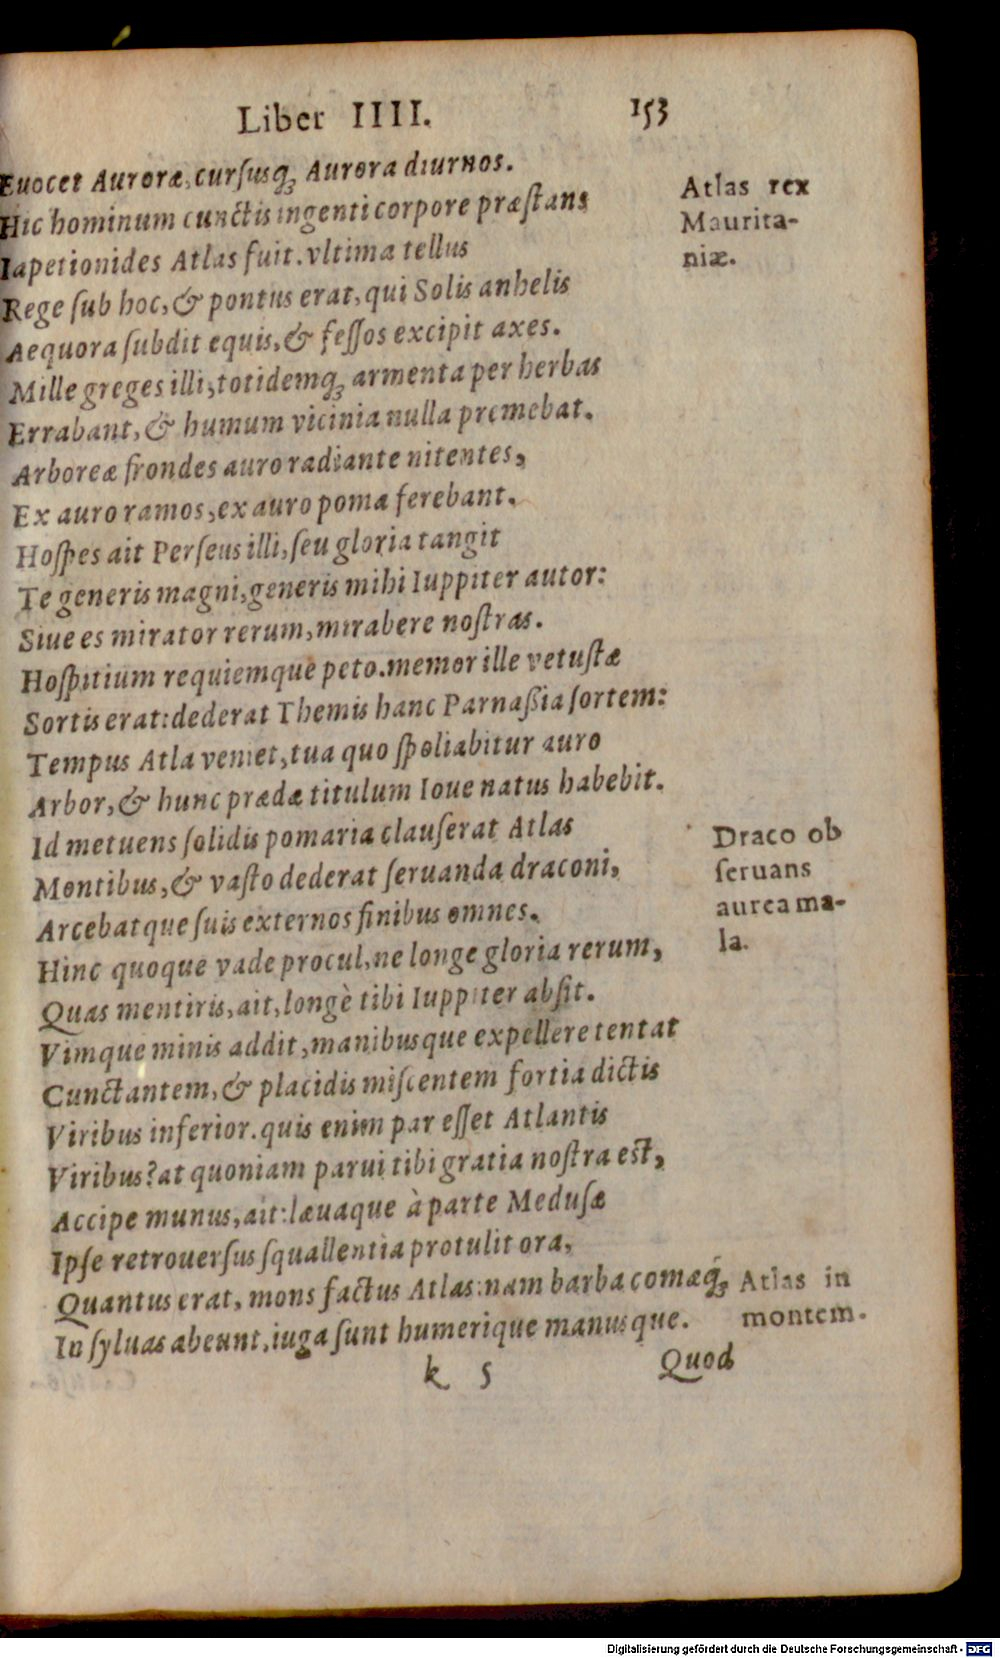 Liber IIII. 153
Euocet Auroræ, cursusq́ꝫ Aurora diurnos.
Hic hominum cunctis ingenti corpore præſtans
Iapetionides Atlas fuit. vltima tellus
Rege ſub hoc, & pontus erat, qui Solis anhelis
Aequora ſubdit equis, & feſſos excipit axes.
Mille greges illi, totidemqꝫ armenta per herbas
Errabant, & humum vicinia nulla premebat.
Arboreæ frondes auro radiante nitentes,
Ex auro ramos, ex auro poma ferebant.
Hoſpes ait Perſeus illi, ſeu gloria tangit
Te generis magni, generis mihi Iuppiter autor:
Siue es mirator rerum, mirabere noſtras.
Hoſpitium requiemque peto. memor ille vetuſtæ
Sortis erat: dederat Themis hanc Parnaßia ſortem:
Tempus Atla veniet, tua quo ſpoliabitur auro
Arbor, & hunc prædæ titulum Ioue natus habebit.
Id metuens ſolidis pomaria clauſerat Atlas
Montibus, & vaſto dederat ſeruanda draconi,
Arcebatque ſuis externos finibus omnes.
Hinc quoque vade procul, ne longe gloria rerum,
Quas mentiris, ait, longè tibi Iuppiter abſit.
Vimque minis addit, manibusque expellere tentat
Cunctantem, & placidis miſcentem fortia dictis
Viribus inferior. quis enim par eſſet Atlantis
Viribus? at quoniam parui tibi gratia noſtra eſt,
Accipe munus, ait: læuaque à parte Meduſæ
Ipſe retrouerſus ſquallentia protulit ora,
Quantus erat, mons factus Atlas: nam barba comæq́ꝫ
In ſyluas abeunt, iuga ſunt humerique manusque.
k 5 Quod
Atlas rex
Maurita-
niæ.
Draco ob
ſeruans
aurea ma-
la.
Atlas in
montem.
Digitalisierung gefördert durch die Deutsche Forschungsgemeinschaft - DFG